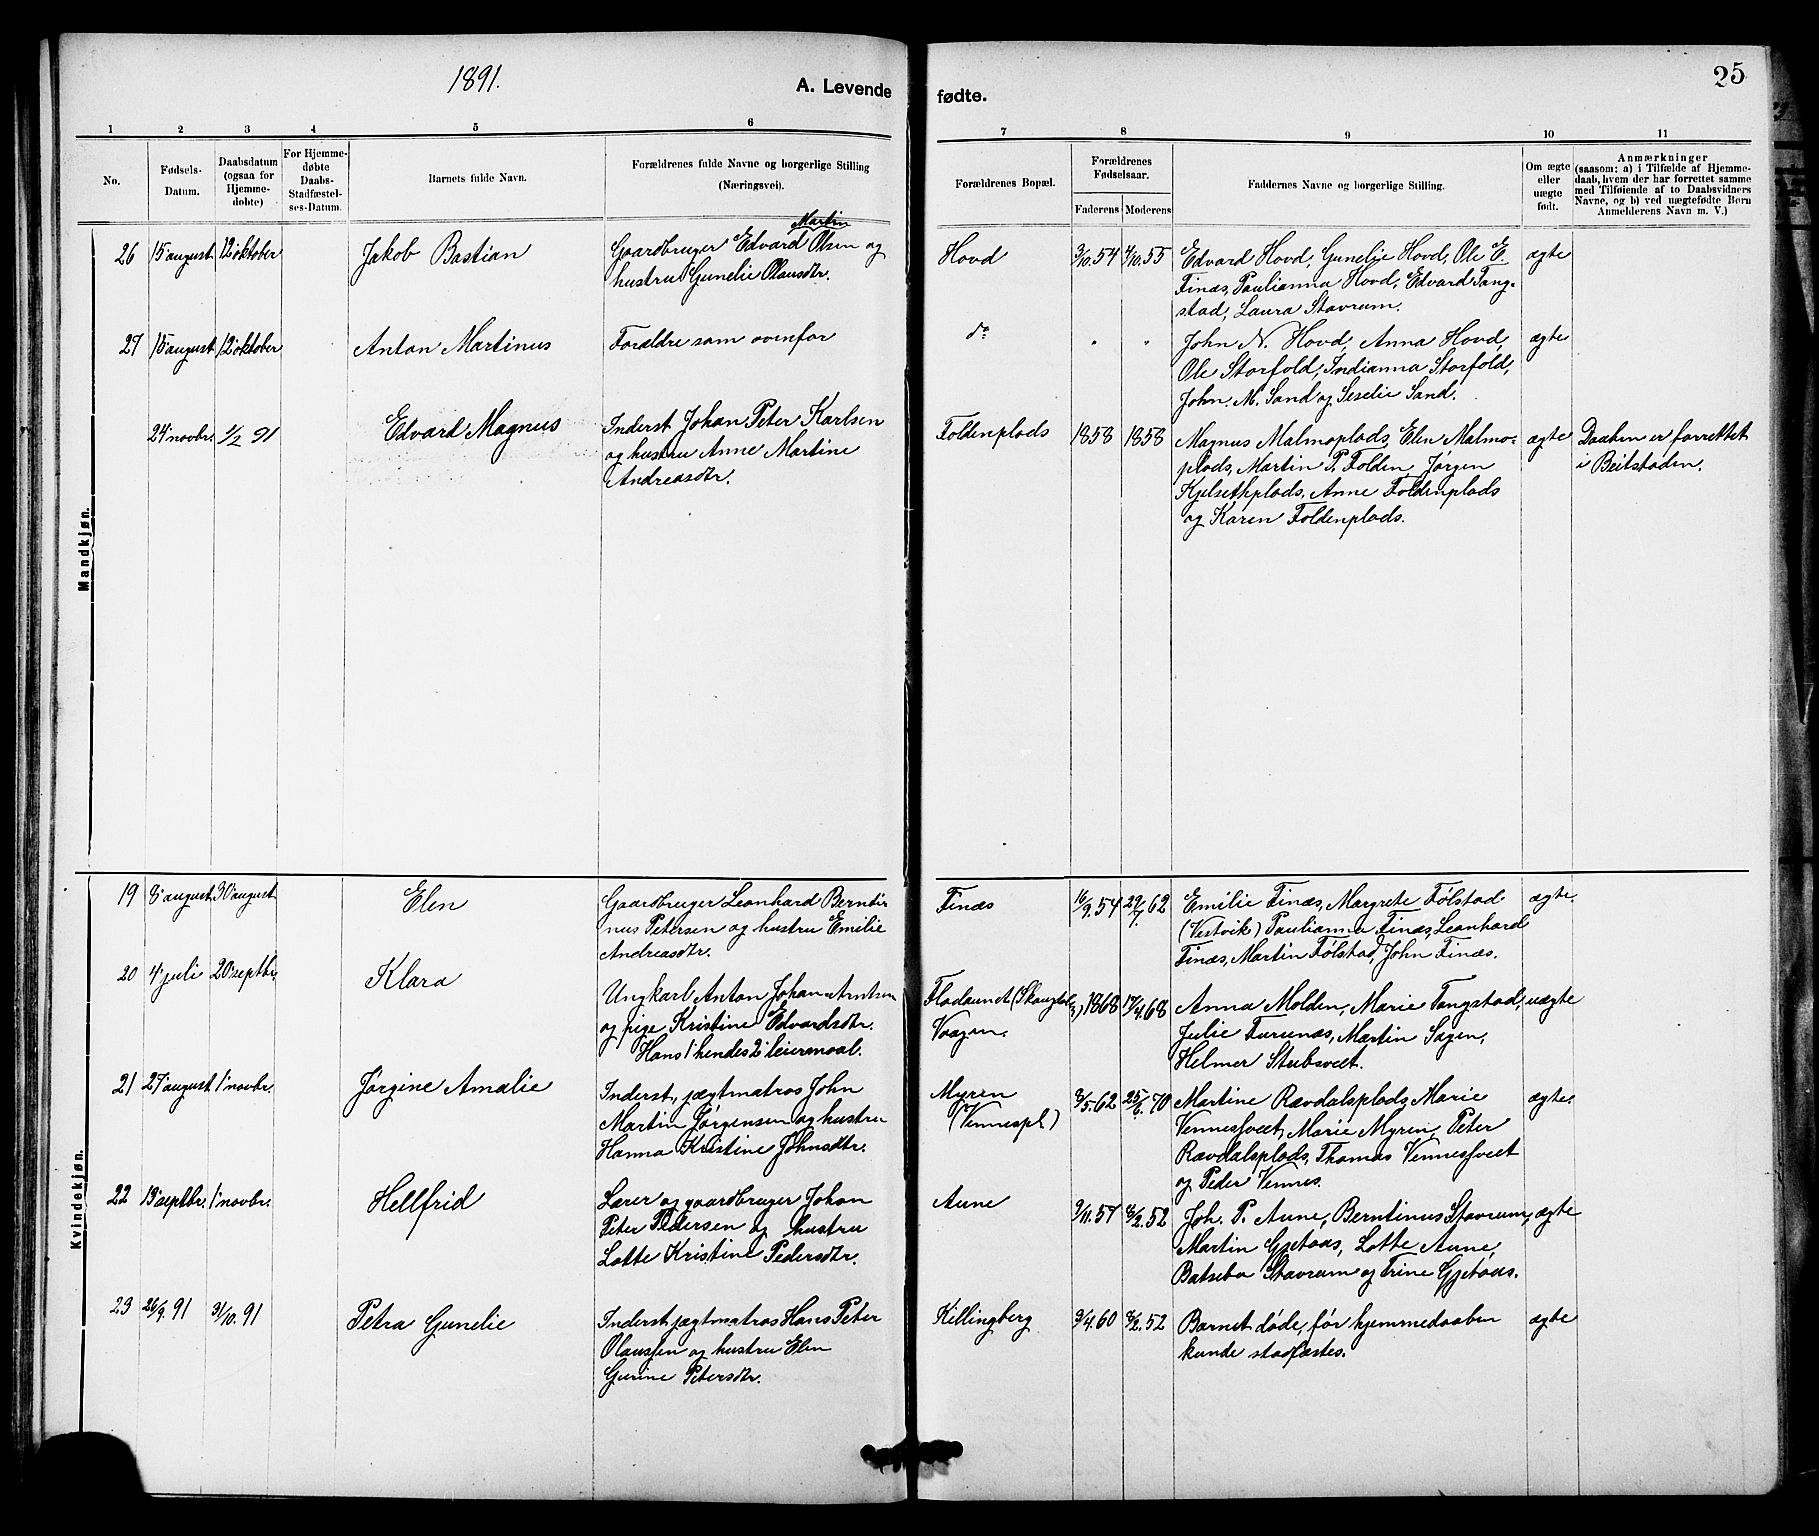 1891.
A. Levende
fødte.
25
1 2 3 4 5 6 7 8 9 10 11
No.
Fødsels-
Datum.
Daabsdatum
(ogsaa for
Hjemme-
døbte)
For Hjemme-
døbte
Daabs-
Stadfæstel-
ses-Datum.
Barnets fulde Navn.
Forældrenes fulde Navne og borgerlige Stilling
(Næringsvei).
Forældrenes Bopæl.
Forældrenes
Fødselsaar.
Faderens Moderens
Faddernes Navne og borgerlige Stilling.
Om ægte
eller
uægte
født.
Anmærkninger
(saasom: a) i Tilfælde af Hjemme-
daab, hvem der har forrettet samme
med Tilføiende af to Daabsvidners
Navne, og b) ved uægtefødte Børn
Anmelderens Navn m. V.)
Mandkjøn.
Martin
26 15' august 12' oktober Jakob Bastian Gaardbruger Edvard Olsen og Hovd 3/10.54 4/10.55 Edvard Hovd, Gunelie Hovd, Ole E. ægte
hustru Gunelie Olausdtr. Finæs, Paulianna Hovd, Edvard Tang-
stad, Laura Stavrum.
27 15' august 12' oktober Anton Martinus Forældre som ovenfor do " " John N. Hovd, Anna Hovd, ægte
Ole Storfold, Indianna Storfold,
John. M. Sand og Seselie Sand.
24' novbr. 1/2 91 Edvard Magnus Inderst Johan Peter Karlsen Foldenplads 1858 1858 Magnus Malmoplads, Elen Malmo- ægte Daaben er forrettet
og hustru Anne Martine plads, Martin P. Folden, Jørgen i Beitstaden.
Andreasdtr. Kjelsethplads, Anne Foldenplads
og Karen Foldenplads.
Kvindekjøn.
19 8' august 30' august Elen Gaardbruger Leonhard Bernti Finæs 16/9.54 29/7.62 Emilie Finæs, Margrete Følstad ægte.
nus Petersen og hustru Emilie (Vestvik) Paulianna Finæs, Leonhard
Andreasdtr. Finæs, Martin Følstad, John Finæs.
20 4' juli 20' septbr. Klara Ungkarl Anton Johan Arntsen Fladaunet 1868 17/4.68 Anna Molden, Marie Tangstad, uægte
og pige Kristine Edvardsdtr. Vaagen. Julie Furunæs, Martin Sagen,
Hans 1' hendes 2' leiermaal. Helmer Stubsveet.
21 27' august 1' novbr. Jørgine Amalie Inderst, jægtmatros John Myren 8/5.62 25/6.70 Martine Rævdalsplads, Marie ægte.
Martin Jørgensen og hustru (Vennespl.) Vennesfveet, Marie Myren, Peter
Hanna Kristine Johnsdtr. Rævdalsplads, Thomas Vennesfveet
og Peder Vennes.
22 13' septbr. 1' novbr. Hellfrid Lærer og gaardbruger Johan Aune 3/11.57 8/2.52 Joh. P. Aune, Berntinus Stavrum, ægte
Peter Pedersen og hustru Martin Gjetaas, Lotte Aune,
Lotte Kristine Pedersdtr. Batseba Stavrum og Trine Gjetaas.
23 26/9. 91 31/10. 91 Petra Gunelie Inderst jægtmatros Hans Peter Killingberg 3/4.60 8/2.52 Barnet døde, før hjemmedaaben ægte
Olaussen og hustru Elen kunde stadfæstes.
Gurine Petersdtr.